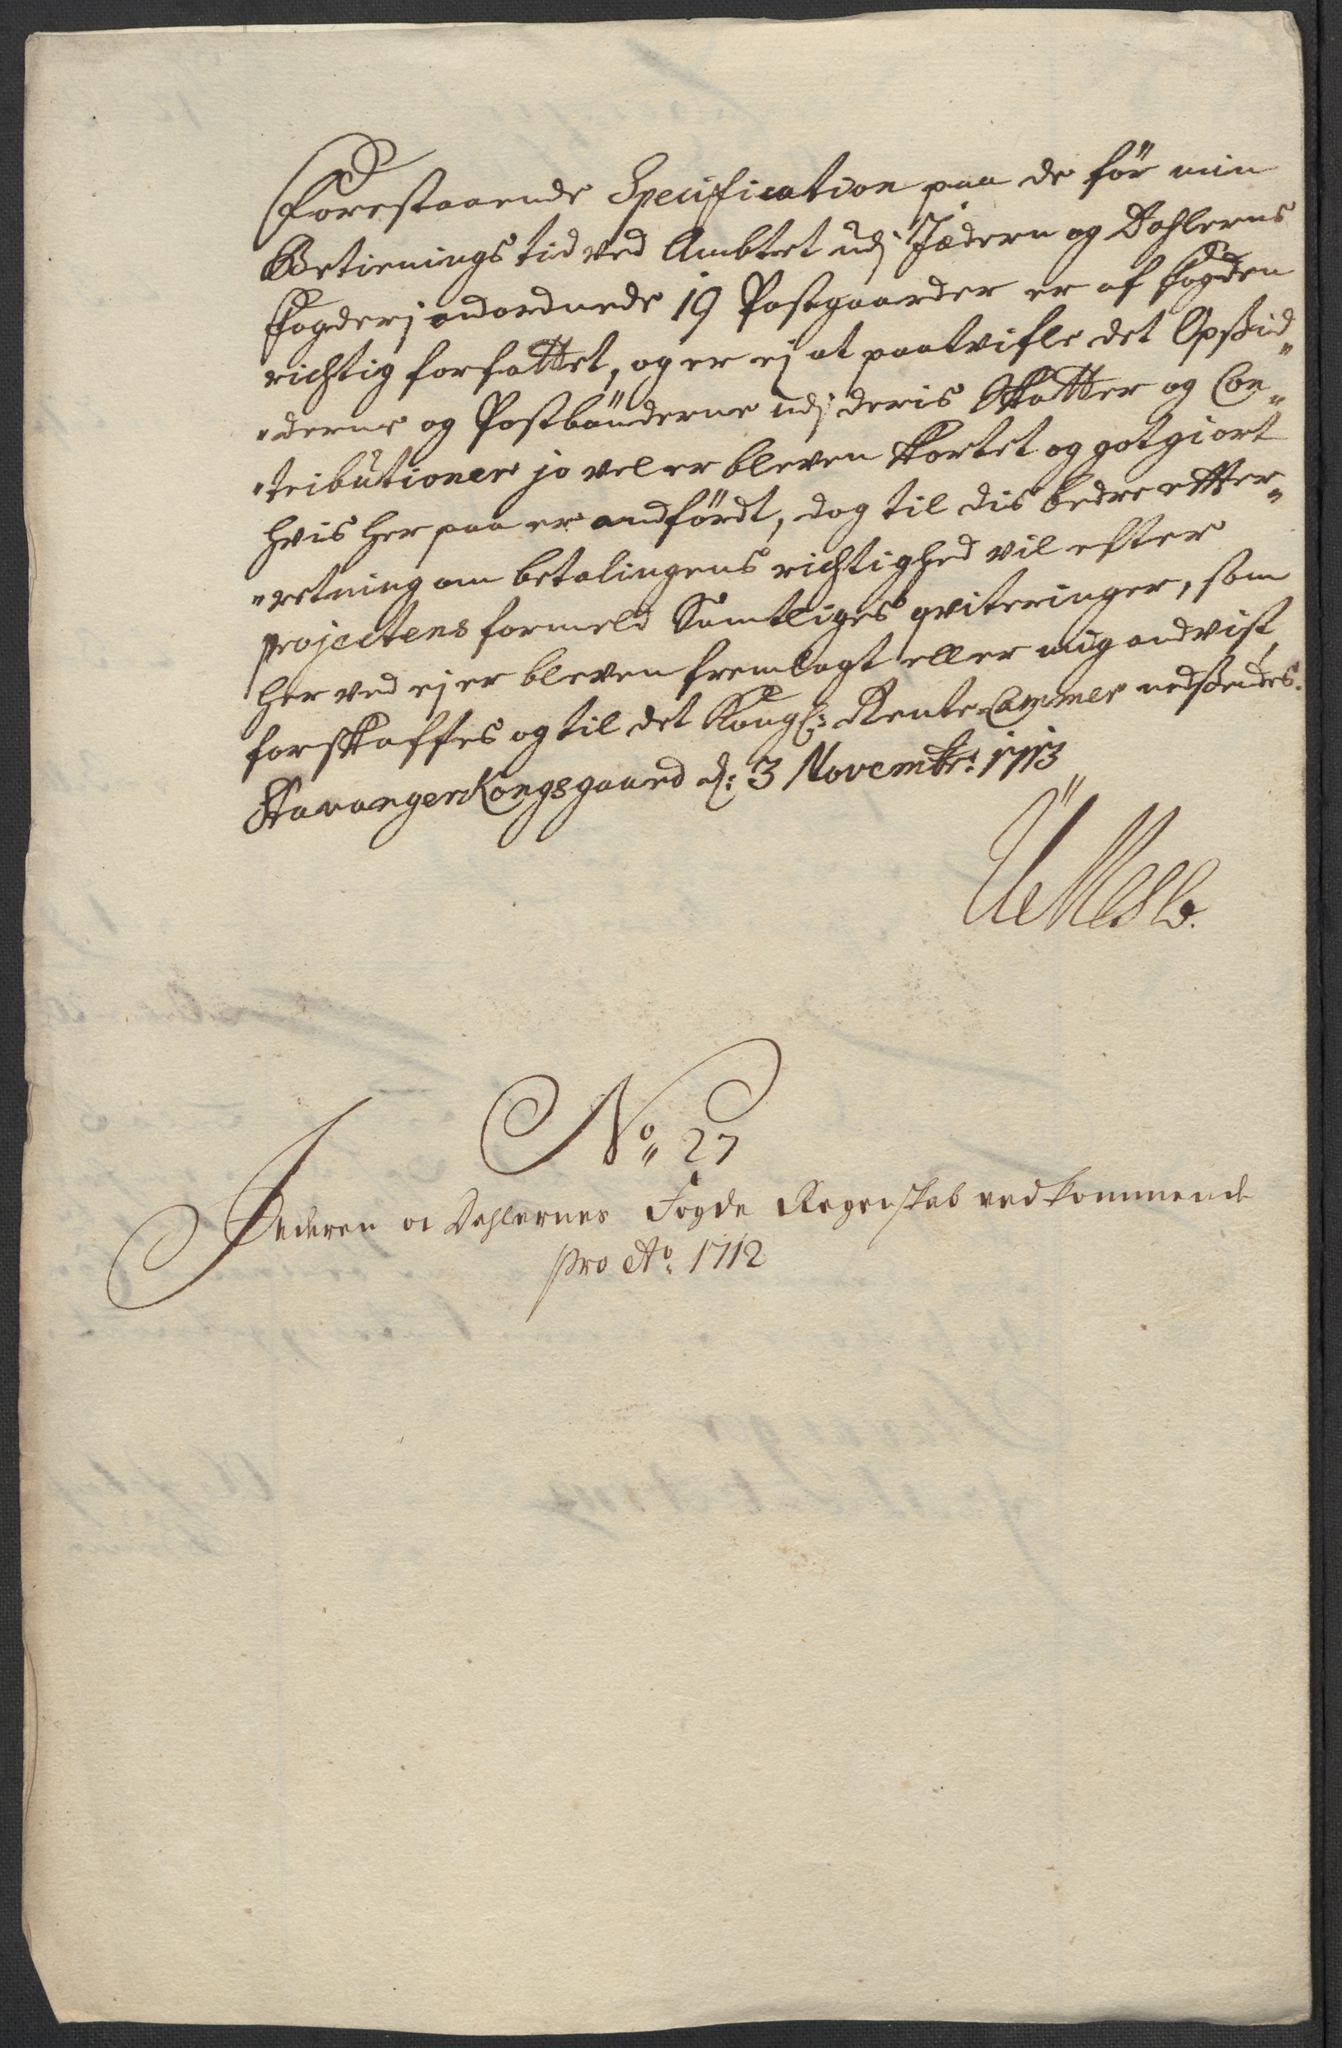 Forestaaende Specification paa de för min
Betienings tid ved Ambtet udj Jædern og Dahlerns
Fogderj anordnede 19 Postgaarder er af Fogden
richtig forfattet, og er ej at paatvifle det Opsid„
„derne og Postbönderne udj deris Skatter og Con„
„tributioner jo vel er bleven kortet og gotgiort
hvis her paa er andfördt, dog til dis bedre effter„
„retning om betalingens richtighed vil efter
projectens formeld Samtliges qviteringer, som
her ved ej er bleven fremlagt eller mig andvist,
forskaffes og til det Kongl: Rente Cammer nedsendes.
Stavanger Kongsgaard d: 3 Novembr: 1713
No„ 27
Jederen oc Dahlernes Fogde Regenskab vedkommende
pro Ao: 1712